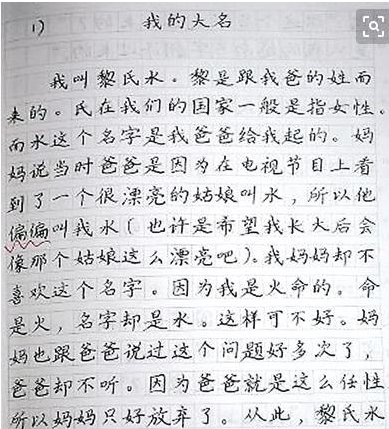 1) 我的大名
我叫黎氏水。黎是跟我爸的姓而
来的。氏在我们的国家一般是指女性。
而水这个名字是我爸爸给我起的。妈
妈说当时爸爸是因为在电视节目上看
到了一个很漂亮的姑娘叫水，所以他
偏偏叫我水（也许是希望我长大后会
像那个姑娘这么漂亮吧）。我妈妈却不
喜欢这个名字。因为我是火命的。命
是火，名字却是水。这样可不好。妈
妈也跟爸爸说过这个问题好多次了，
爸爸却不听。因为爸爸就是这么任性
所以妈妈只好放弃了。从此，黎氏水